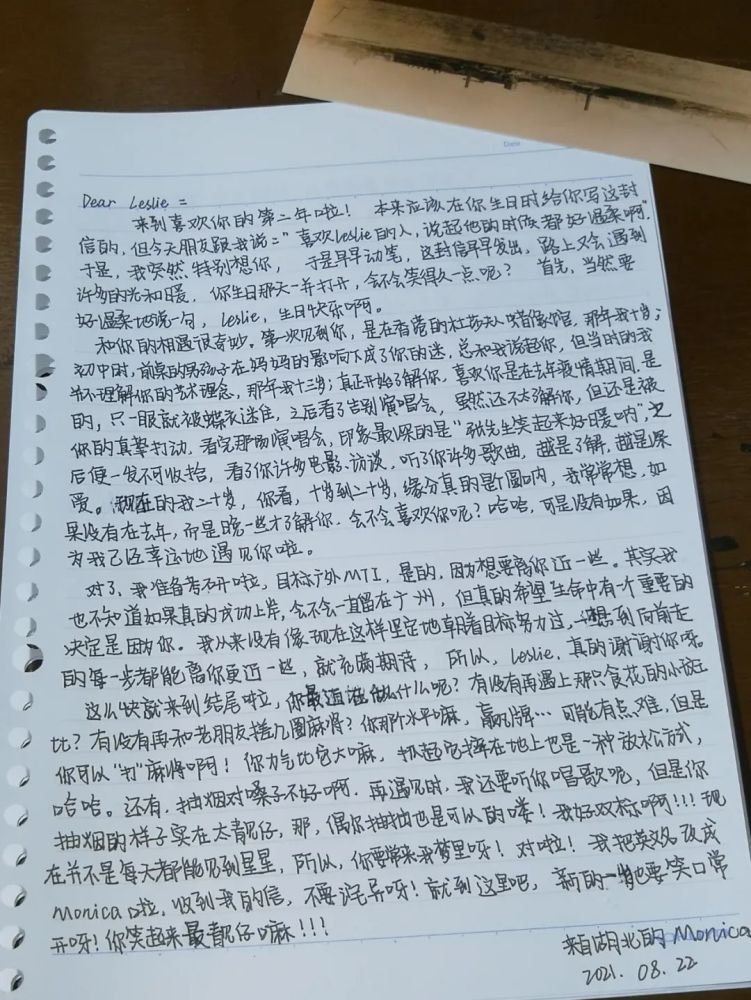 Date
Dear Leslie =
来到喜欢你的第二年啦！ 本来应该在你生日时给你写这封
信的，但今天朋友跟我说："喜欢Leslie的人，说起他的时候都好温柔啊"，
于是，我突然特别想你，于是早早动笔，这封信早早发出，路上又会遇到
许多的光和暖，你生日那天一并打开，会不会笑得久一点呢？ 首先，当然要
好温柔地说一句，Leslie，生日快乐啊。
和你的相遇很奇妙。第一次见到你，是在香港的杜莎夫人蜡像馆，那年我十岁；
初中时，前桌的男孩子在妈妈的影响下成了你的迷，总和我说起你，但当时的我
并不理解你的艺术理念，那年我十三岁；真正开始了解你、喜欢你是在去年疫情期间，是
的，只一眼就被蝶衣迷住，之后看了告别演唱会，虽然还不太了解你，但还是被
你的真挚打动，看完那场演唱会，印象最深的是"张先生笑起来好暖呐"，之
后便一发不可收拾，看了你许多电影、访谈，听了你许多歌曲，越是了解，越是深
爱。现在的我二十岁，你看，十岁到二十岁，缘分真的是个圆呐，我常常想，如
果没有在去年，而是晚一些才了解你，会不会喜欢你呢？哈哈，可是没有如果，因
为我已经幸运地遇见你啦。
对了，我准备考研啦，目标广外MTI，是的，因为想要离你近一些。其实我
也不知道如果真的成功上岸，会不会一直留在广州，但真的希望生命中有一个重要的
决定是因为你。我从来没有像现在这样坚定地朝着目标努力过，一想到向前走
的每一步都能离你更近一些，就充满期待，所以，Leslie，真的谢谢你呀。
这么快就来到结尾啦，你最近在做什么呢？有没有再遇上那只食花的小斑
比？有没有再和老朋友搓几圈麻将？你那个水平嘛，赢牌…可能有点难，但是
你可以"打"麻将啊！你力气比它大嘛，扒起它摔在地上也是一种放松方式，
哈哈。还有，抽烟对嗓子不好啊，再遇见时，我还要听你唱歌呢，但是你
抽烟的样子实在太靓仔，那，偶尔抽抽也是可以的喽！我好双标啊！！！现
在并不是每天都能见到星星，所以，你要常来我梦里呀！对啦！我把英文名改成
Monica啦，收到我的信，不要诧异呀！就到这里吧，新的一岁也要笑口常
开呀！你笑起来最靓仔嘛！！！
来自湖北的Monica
2021. 08. 22